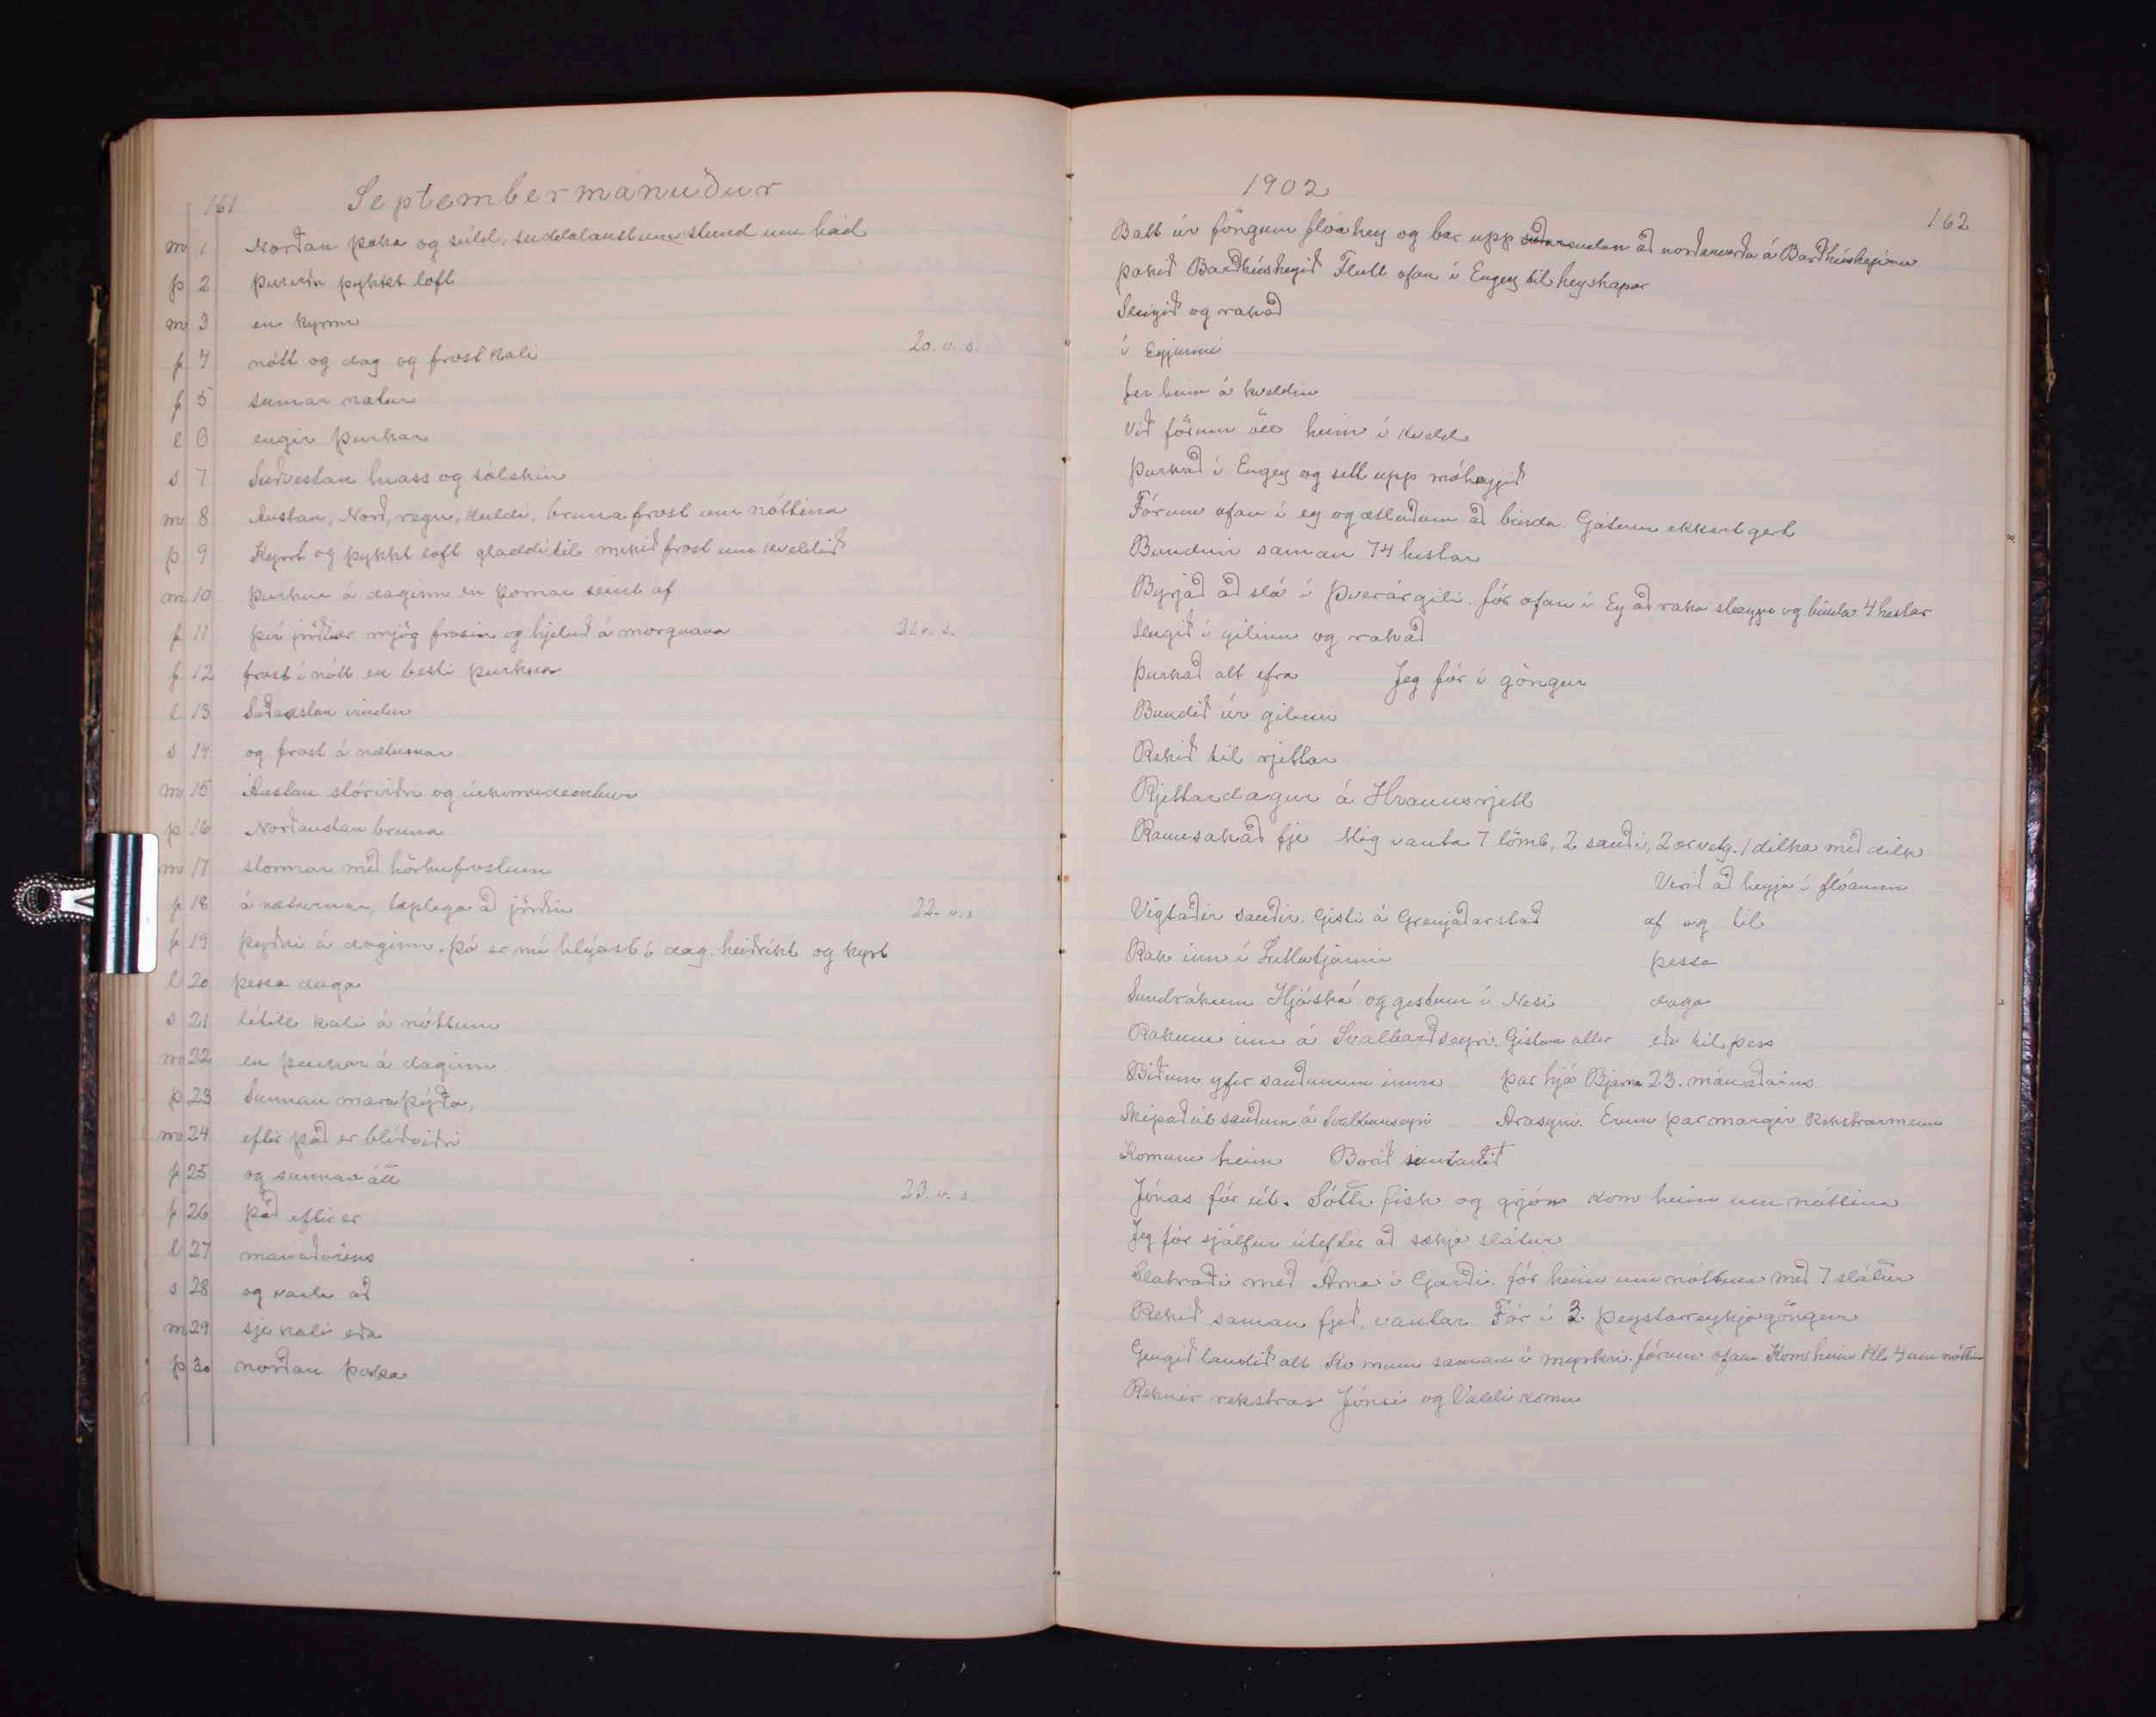 161 Septembermánuður
m 1 Norðan þoka og súld, suddalaust um stund um hád
þ 2 þurviðri þykkt loft
m 3 en kyrrur
f 4 nótt og dag og frost kali 20. v. s.
f 5 sumar nætur
l 6 engir þurkar
s 7 Suðvestan hvass og sólskin
m 8 Austan, Norð, regn, kuldi, bruna frost um nóttina
þ 9 Kyrrt og þykkt loft gladdi til mikið frost um kveldið
m 10 þurkur á daginn en þornar seint af
f 11 því jörðin er mjög frosin og hjeluð á morgnana 21. v. s.
f 12 frost í nótt en besti þurkur
l 13 Suðaustan vindur
s 14 og frost á næturnar
m 15 Austan stórviðri og
þ 16 Norðaustan bruna
m 17 stormar með hörkufrostum
f 18 á næturnar, tæplega að jörðin 22. v. s
f 19 þyðni á daginn. þó er nú hlýast í dag. heiðríkt og kyrt
l 20 þessa daga
s 21 lítill kali á nóttum
m 22 en þurkar á daginn
þ 23 Sunnan mara þýða,
m 24 eftir það er blíðviðri
f 25 og sunnan átt
f 26 það eftir er 23. v. s.
l 27 mánaðarins
s 28 og varla að
m 29 sje kali eða
þ 30 norðan þoka
1902 162
Batt úr föngum flóahey og bar upp að norðanverðu á Barðhúsheyinu
þakið Barðhúsheyið Flutt ofan í Engey til heyskapar
Slegið og rakað
í Eyjunni
fer heim á kveldin
Við förum öll heim í kveld
Þurkað í Engey og sett upp móheyið
Fórum ofan í ey og ætluðum að binda. Gátum ekkert gert
Bundnir saman 74 hestar
Byrjað að slá í Þverárgili. fór ofan í Ey að raka slægju og binda 4 hestar
Slegið í gilinu og rakað
Þurkað alt efra Jeg fór í göngur
Bundið úr gilinu
Rekið til rjettar
Rjettardagur á Hraunsrjett
Rannsakað fje Mig vanta 7 lömb, 2 sauði, 2 veturg. 1 dilka með dilk
Verið að heyja í flóanum
Vigtaðir sauðir. Gisti á Grenjaðarstað af og til
Rak inn í Litlutjörnir þessa
Sundrákum Hjáská og gistum í Nesi daga
Rákum inn á Svalbarðseyri. Gistum allir eða til þess
Biðum yfir sauðunum inna þar hjá Bjarna 23. mánaðarins
Skipað út sauðum á Svalbarðseyri Arasyni. Erum þar margir Rekstrarmenn
Komum heim Borið
Jónas fór út. Sótti fisk og grjón kom heim um nóttina
Jeg fór sjálfur útefter að sækja slátur
Slátraði með Árna í Garði. fór heim um nóttina með 7 slátur
Rekið saman fjeð, vantar Fór í 3. Þeystareykjagöngur
Gengið landið alt Komum saman í myrkri. fórum ofan Kom heim Kl. 4 um nóttu
Reknir rekstrar Jónsi og Valdi komu